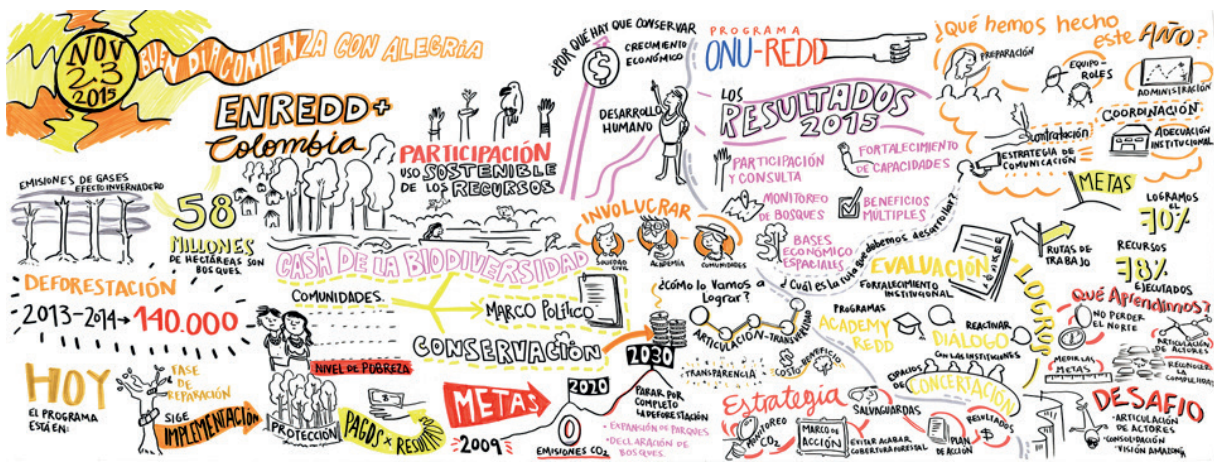 NOV
2.3
2015
BUEN DIA COMIENZA CON ALEGRiA
ENREDD+
Colombia
EMISIONES DE GASES
EFECTO INVERNADERO
58
MILLONES
DE HECTÁREAS SON
BOSQUES.
DEFORESTACIÓN
2013-2014→140.000
HOY
EL PROGRAMA
ESTÁ EN:
FASE
DE
REPARACIÓN
SIGE
IMPLEMENTACIÓN
PARTICIPACIÓN
USO SOSTENIBLE
DE LOS RECURSOS
CASA DE LA BIODIVERSIDAD
COMUNIDADES.
MARCO POLÍTICO
CONSERVACIÓN
NIVEL DE POBREZA
PROTECCIÓN
PAGOS x
METAS
2009
2020
2030
0
EMISIONES CO2
PARAR POR
COMPLETO
LA DEFORESTACIÓN
• EXPANSIÓN DE PARQUES.
• DECLARACIÓN DE
BOSQUES.
¿POR QUÉ HAY QUE CONSERVAR
$
CRECIMIENTO
ECONÓMICO
DESARROLLO
HUMANO
INVOLUCRAR
SOCIEDAD
CIVIL
ACADEMÍA
COMUNIDADES
¿Cómo lo Vamos a
Lograr?
ARTICULACIÓN-TRANSVERSALIDAD
TRANSPARENCIA
COSTO-BENEFICIO
PROGRAMA
ONU-REDD
LOS
RESULTADOS
2015
PARTICIPACIÓN
Y CONSULTA
FORTALECIMIENTO
DE CAPACIDADES
MONITOREO
DE BOSQUES
BENEFICIOS
MÚLTIPLES
BASES
ECONÓMICO
ESPACIALES
¿Cuál es la ruta que debemos desarrollar?
EVALUACIÓN
FORTALECIMIENTO
INSTITUCIONAL
PROGRAMAS
ACADEMY
REDD
REACTIVAR
DIÁLOGO
CON LAS INSTITUCIONES
ESPACIOS
DE
CONCERTACIÓN
LOGROS
Estrategia
MONITOREO
CO2
MARCO DE
ACCIÓN
SALVAGUARDAS
EVITAR ACABAR
COBERTURA FORESTAL
PLAN
DE ACCIÓN
RESULTADOS
$
¿Qué hemos hecho
este AÑO?
PREPARACIÓN
EQUIPO-
ROLES
ADMINISTRACIÓN
COORDINACIÓN
contratación
ADECUACIÓN
INSTITUCIONAL
ESTRATEGIA DE
COMUNICACIÓN
METAS
LOGRAMOS
EL
70%
RECURSOS
78%
EJECUTADOS
RUTAS DE
TRABAJO
Qué Aprendimos?
NO PERDER
EL NORTE
ARTICULACIÓN
DE ACTORES
MEDIR LAS
METAS
RECONOCER
LA
DESAFIO
•ARTICULACIÓN
DE ACTORES
•CONSOLIDACIÓN
•VISIÓN